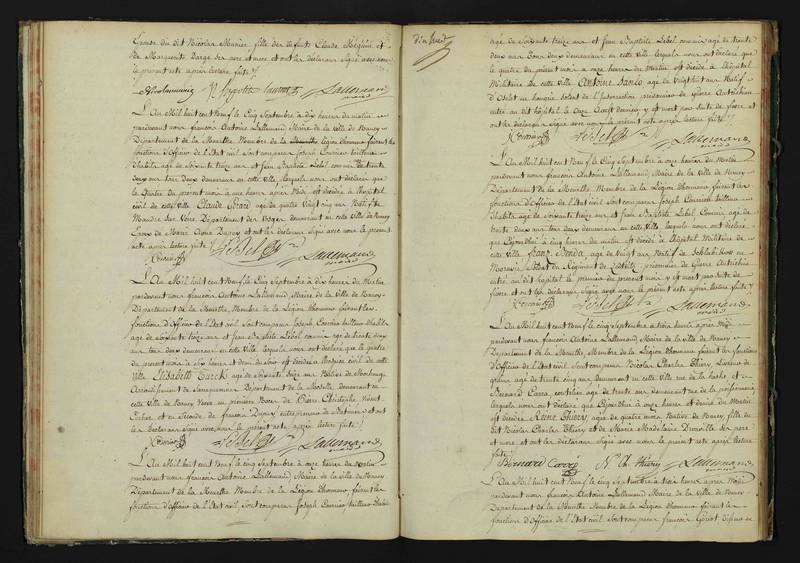 Epouse du dit Nicolas Munier, fille des défunts Claude et
de Marguerite Barge ses pere et mere, et ont les déclarans Signé avec nous
le present acte après lecture faite /.
Lallemand
maire
L'An Mil huit cent Neuf le Cinq Septembre à dix heures du matin
pardevant nous françois Antoine Lallemand Maire de la Ville de Nancy
Département de la Meurthe Membre de la Légion d'honneur faisant les
fonctions d'Officier de l'Etat civil Sont comparus Joseph Cournier tailleur
d'habits agé de Soixante treize ans et Jean Baptiste Lebel commis agé de trente
deux ans tous deux demeurans en cette Ville, lesquels nous ont déclaré que
le quatre du présent mois à une heure après Midi est décédé à l'hôpital
civil de cette Ville Claude agé de quatre Vingt cinq ans Natif de
Mandre Sur Vere Département des Vosges demeurant en cette Ville de Nancy
Epoux de Marie Agnès et ont les déclarans Signé avec nous le present
acte après lecture faite /.
Lebel
Lallemand
maire
L'An Mil huit cent Neuf le Cinq Septembre à dix heures du matin
pardevant nous françois Antoine Lallemand, Maire de la Ville de Nancy
Département de la Meurthe, Membre de la Légion d'honneur faisant les
fonctions d'Officier de l'Etat civil, Sont comparus Joseph Cournier tailleur d'habits
agé de Soixante treize ans et Jean Baptiste Lebel commis agé de trente deux
ans tous deux demeurans en cette Ville lesquels nous ont déclaré que le quatre
du présent mois à six heures et demi du Soir est décédée à l'hospice civil de cette
Ville Elisabeth agée de Soixante Seize ans Native de
Arrondissement de Sarreguemines Département de la Moselle, demeurant en
cette Ville de Nancy Veuve en premières Noces de Christophe
et en Seconde de françois Dupuy et ont
les déclarans Signé avec nous le present acte après lecture faite /.
Lebel
Lallemand
maire
L'An Mil huit cent Neuf le cinq Septembre à onze heures du matin
pardevant nous françois Antoine Lallemand Maire de la Ville de Nancy
Département de la Meurthe Membre de la Légion d'honneur faisant les
fonctions d'Officier de l'Etat civil, Sont comparus Joseph Cournier tailleur d'habits
agé de Soixante treize ans et Jean Baptiste Lebel commis agé de trente
deux ans tous deux demeurans en cette Ville lesquels nous ont déclaré que
le quatre du présent mois à onze heures du matin est décédé à l'hôpital
Militaire de cette Ville Antoine agé de Vingt huit ans Natif
d' en Soldat de l'Insurrection prisonnier de Guerre Autrichien
entré au dit hôpital le Onze Août dernier, y est mort par suite de fièvre et
ont les déclarans Signé avec nous le present acte après lecture faite /.
Lebel
Lallemand
maire
L'An Mil huit cent Neuf le Cinq Septembre à onze heures du Matin
pardevant nous françois Antoine Lallemand Maire de la Ville de Nancy
Département de la Meurthe, Membre de la Légion d'honneur faisant les
fonctions d'Officier de l'Etat civil Sont comparus Joseph Cournier tailleur
d'habits agé de Soixante treize ans et Jean Baptiste Lebel, Commis agé de
trente deux ans tous deux demeurans en cette Ville lesquels nous ont déclaré
que aujourd'hui à cinq heures du matin est décédé à l'hôpital Militaire de
cette Ville franz Benda agé de vingt ans Natif de en
Soldat du Régiment de prisonnier de Guerre Autrichien
entré au dit hôpital le premier du présent mois y est mort par suite de
fièvre et ont les déclarans Signé avec nous le present acte après lecture faite /.
Lebel
Lallemand
maire
L'An Mil huit cent Neuf le cinq Septembre à trois heures après Midi
pardevant nous françois Antoine Lallemand Maire de la ville de Nancy
Département de la Meurthe, Membre de la Légion d'honneur faisant les fonctions
d'Officier de l'Etat civil Sont comparus Nicolas Charles Thiery,
agé de trente cinq ans demeurant en cette Ville rue de la et
Bernard Carré, agé de trente ans demeurant rue de la poissonnerie
lesquels nous ont déclaré que aujourd'hui à onze heures et demie du Matin
est décédée Reine Thiery agée de quatre mois Native de Nancy, fille du
dit Nicolas Charles Thiery et de Marie Madelaine ses pere
et mere et ont les déclarans Signé avec nous le present acte après lecture
faite /.
Bernard Carré N. Ch. Thiery Lallemand
maire
L'An Mil huit cent Neuf le cinq Septembre à trois heures après Midi
pardevant nous françois Antoine Lallemand Maire de la Ville de Nancy
Département de la Meurthe Membre de la Légion d'honneur faisant les
fonctions d'Officier de l'Etat civil Sont comparus françois